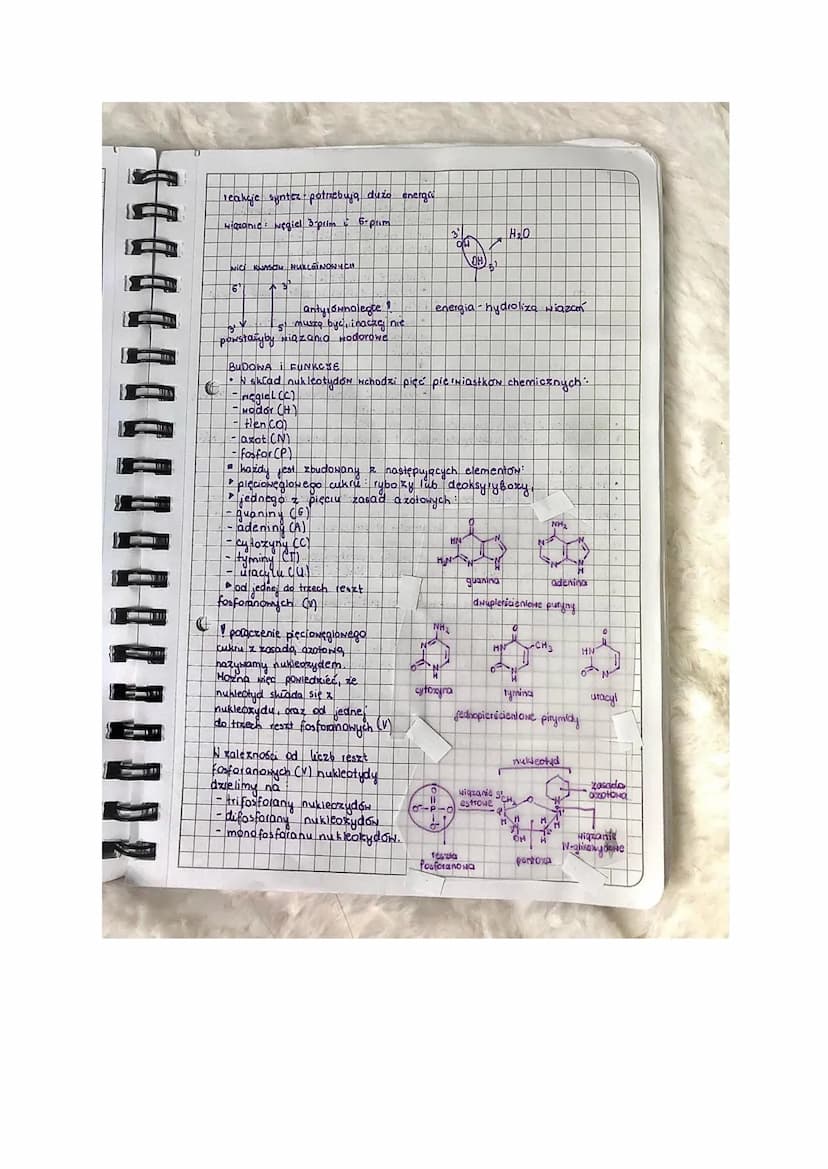 reakcje syntez potrzebują dużo energii
wiązanie: węgiel 3-prim i 5-prim
3'
OH
H₂O
OH
5'
nici kwasów nukleinowych
5'
3'
3'
5'
antyrównoległe !
muszą być, inaczej nie
powstałyby wiązania wodorowe
energia - hydroliza wiązań
BUDOWA i FUNKCJE
• W skład nukleotydów wchodzi pięć pierwiastków chemicznych:
- węgiel (C)
- wodór (H)
- tlen (O)
- azot (N)
- fosfor (P)
▪ każdy jest zbudowany z następujących elementów:
▸ pięciowęglowego cukru: rybozy lub deoksyrybozy,
▸ jednego z pięciu zasad azotowych:
- guaniny (G)
- adeniny (A)
- cytozyny (C)
- tyminy (T)
- uracylu (U)
▸ od jednej do trzech reszt
fosforanowych (V)
O
HN
N
H₂N
N
N
H
guanina
NH₂
N
N
N
N
H
adenina
dwupierścieniowe puryny
! połączenie pięciowęglowego
cukru z zasadą azotową,
nazywamy nukleozydem.
Można więc powiedzieć, że
nukleotyd składa się z
nukleozydu, oraz od jednej
do trzech reszt fosforanowych (V)
NH₂
N
O
N
H
cytozyna
O
HN
CH₃
O
N
H
tymina
O
HN
O
N
H
uracyl
jednopierścieniowe pirymidy
W zależności od liczb reszt
fosforanowych (V) nukleotydy
dzielimy na:
- trifosforany nukleozydów
- difosforany nukleozydów
- monofosforanu nukleozydów.
nukleotyd
zasada
azotowa
wiązanie
estrowe
5'
CH₂
O
O⁻-P-O
O⁻
N
H
H
H
H
OH
H
wiązanie
N-glikozydowe
reszta
fosforanowa
pentoza